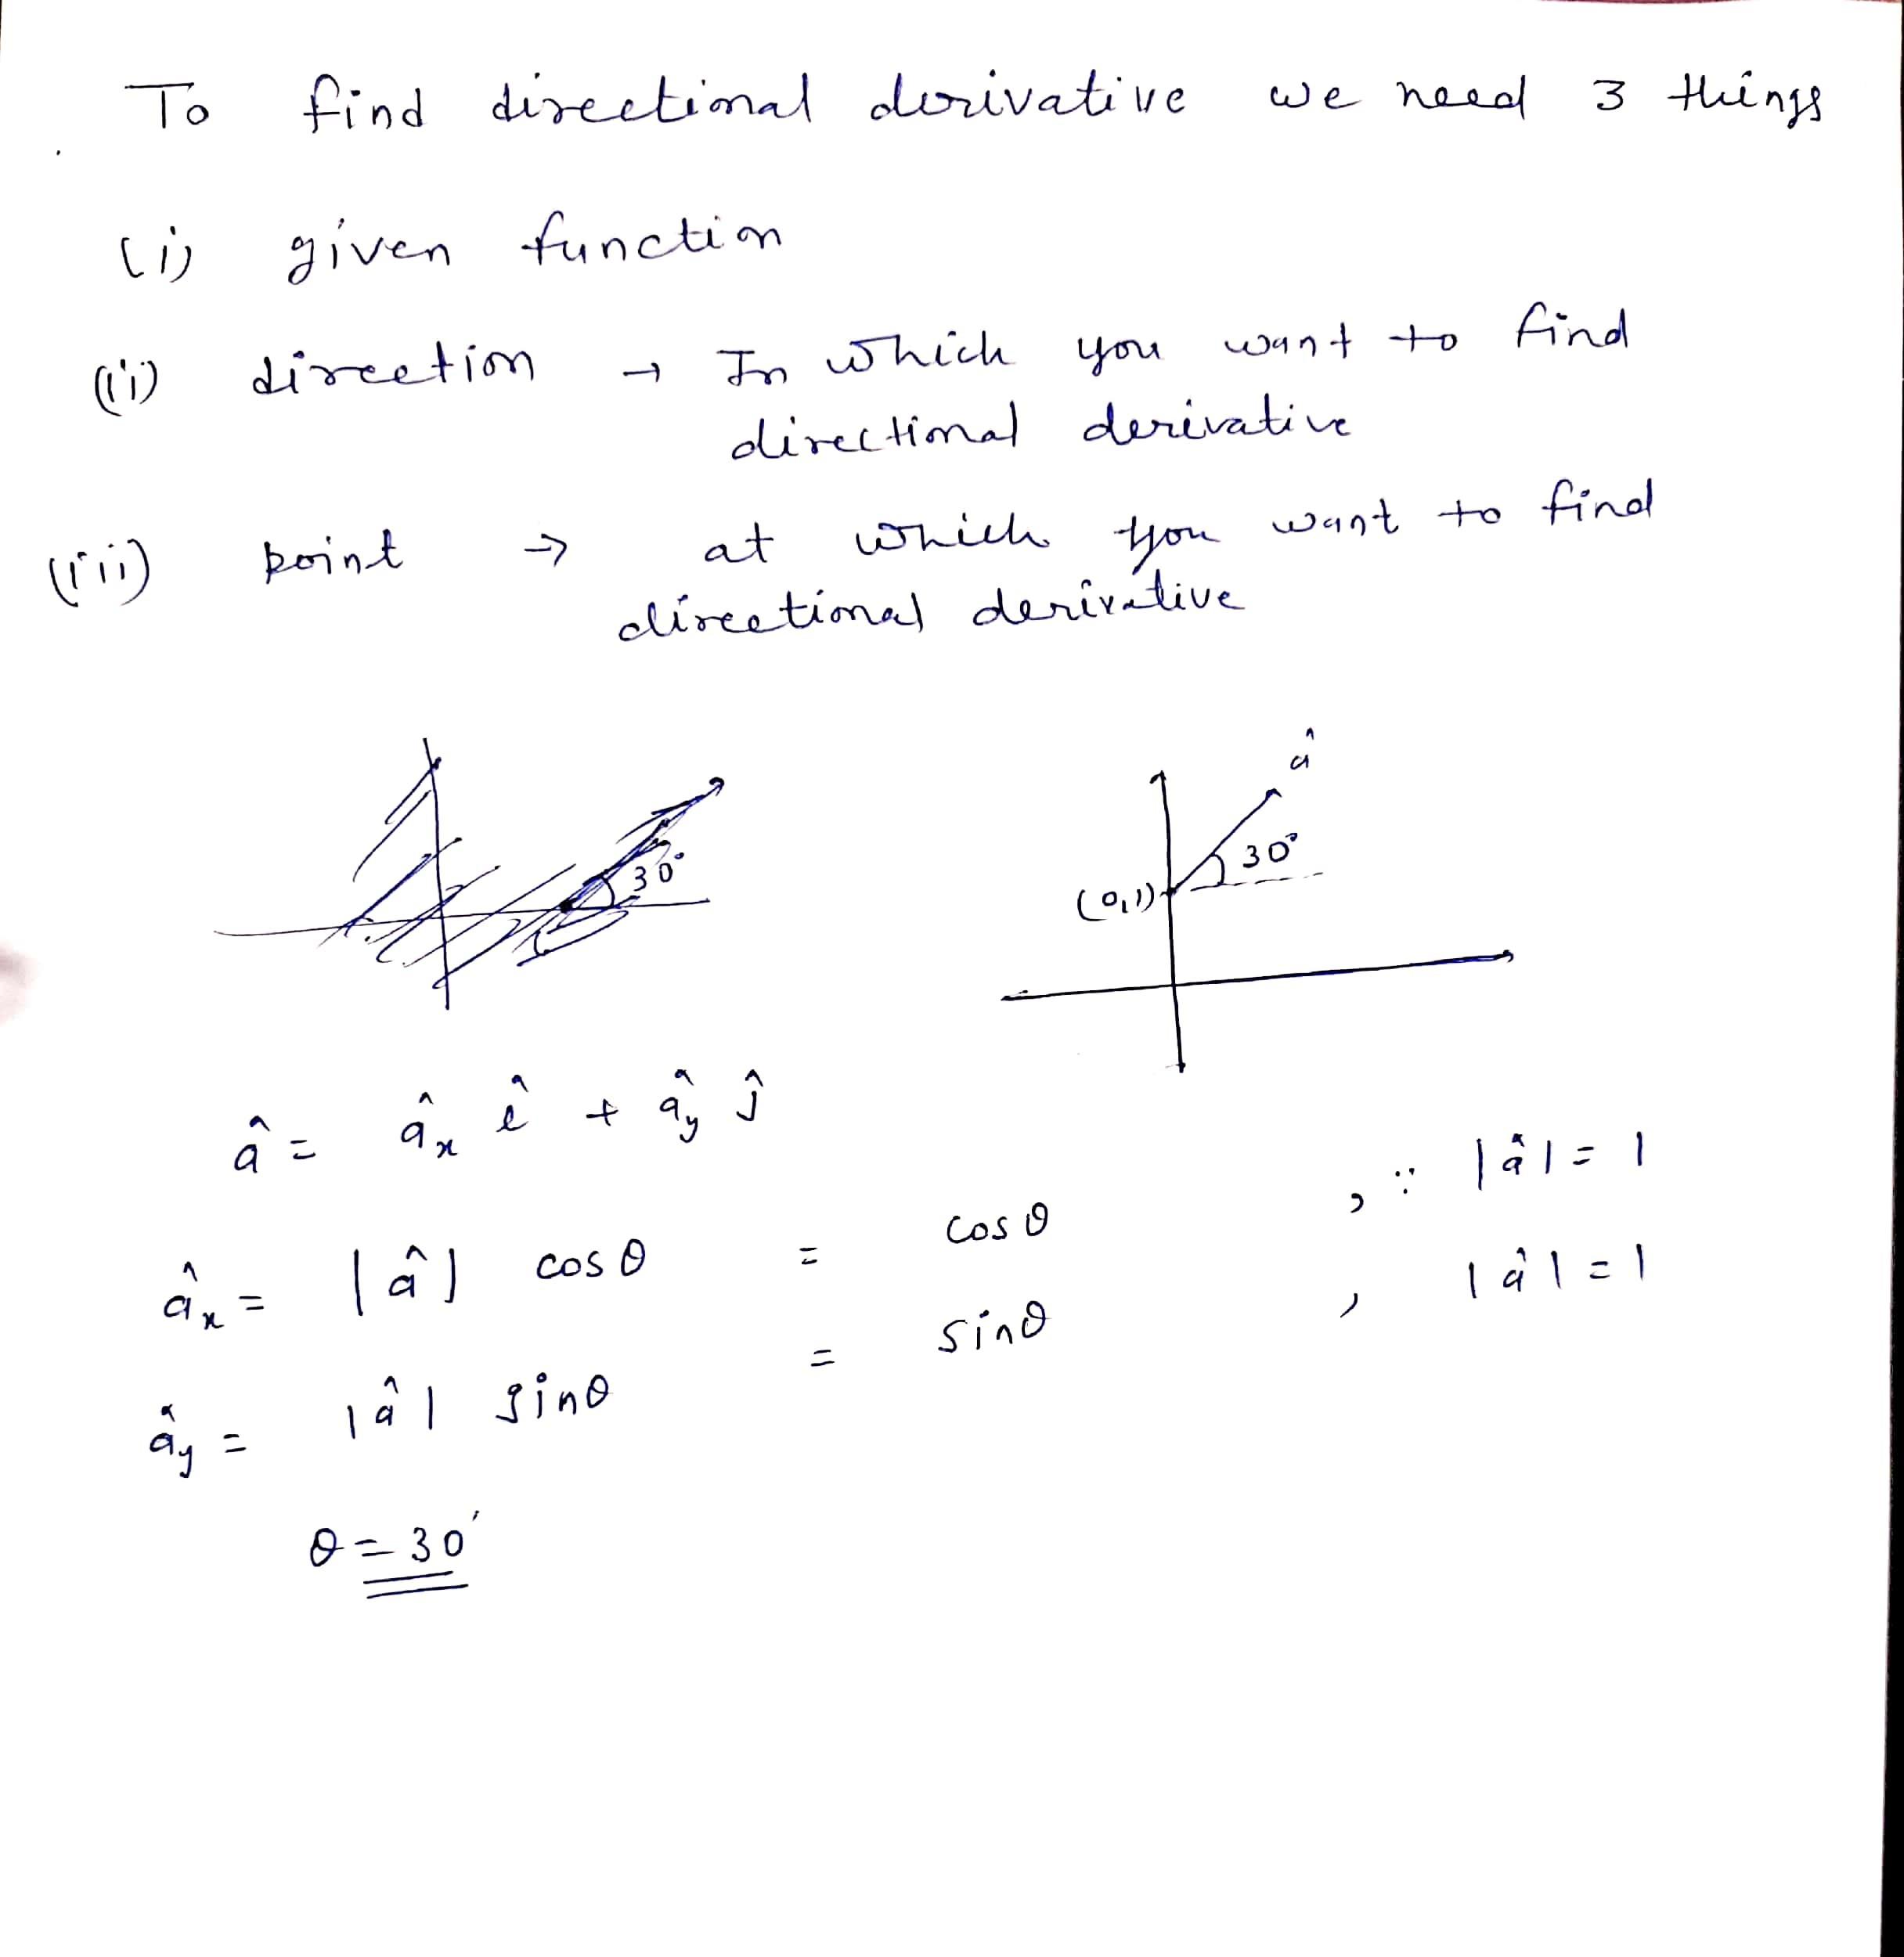 To find directional derivative we need 3 things
(i) given function
(ii) direction → In which you want to find
directional derivative
(iii) point → at which you want to find
directional derivative
30°
â
30°
(0,1)
â = âₓ î + âᵧ ĵ
âₓ = |â| cosθ = cosθ , ∵ |â| = 1
âᵧ = |â| sinθ = sinθ , |â| = 1
θ = 30°